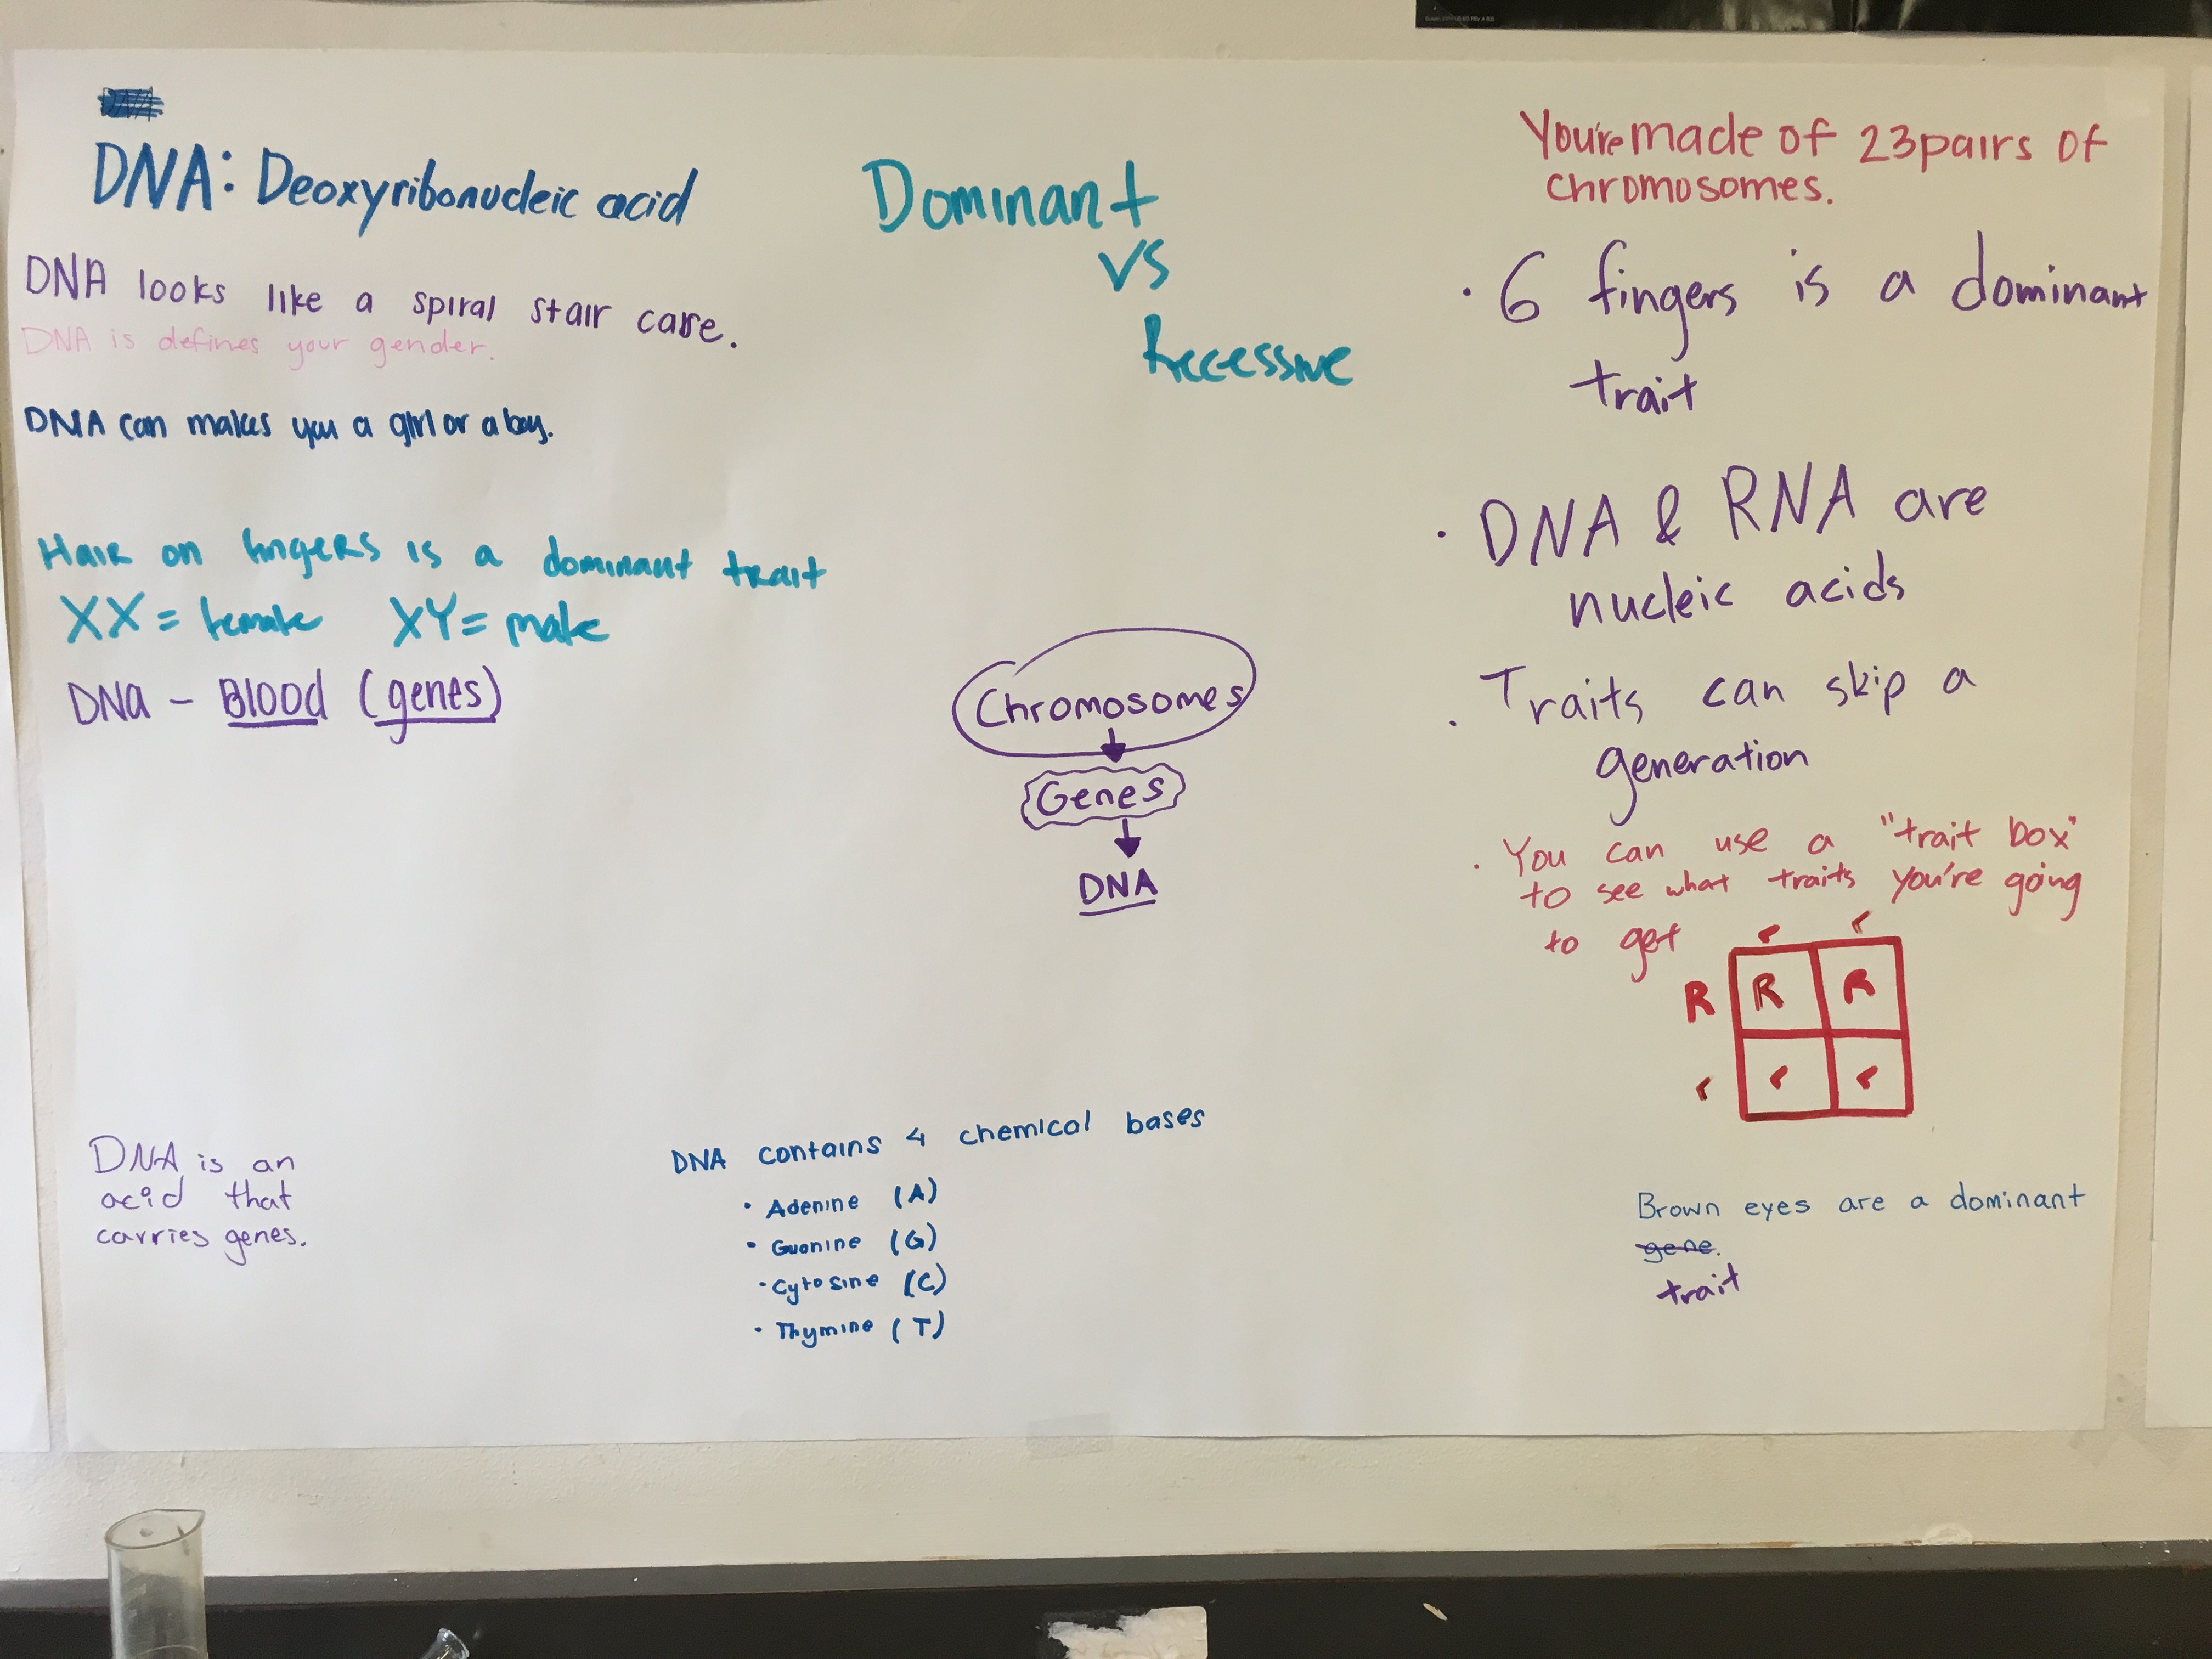 DNA: Deoxyribonucleic acid
DNA looks like a spiral stair case.
DNA is defines your gender.
DNA can makes you a girl or a boy.
Hair on fingers is a dominant trait
XX = female XY = male
DNA - Blood (genes)
DNA is an
acid that
carries genes.
Dominant
vs
Recessive
Chromosomes
Genes
DNA
DNA contains 4 chemical bases
• Adenine (A)
• Guanine (G)
• Cytosine (C)
• Thymine (T)
You're made of 23 pairs of
chromosomes.
• 6 fingers is a dominant
trait
• DNA & RNA are
nucleic acids
• Traits can skip a
generation
• You can use a "trait box"
to see what traits you're going
to get
r r
R R R
r r r
Brown eyes are a dominant
gene.
trait